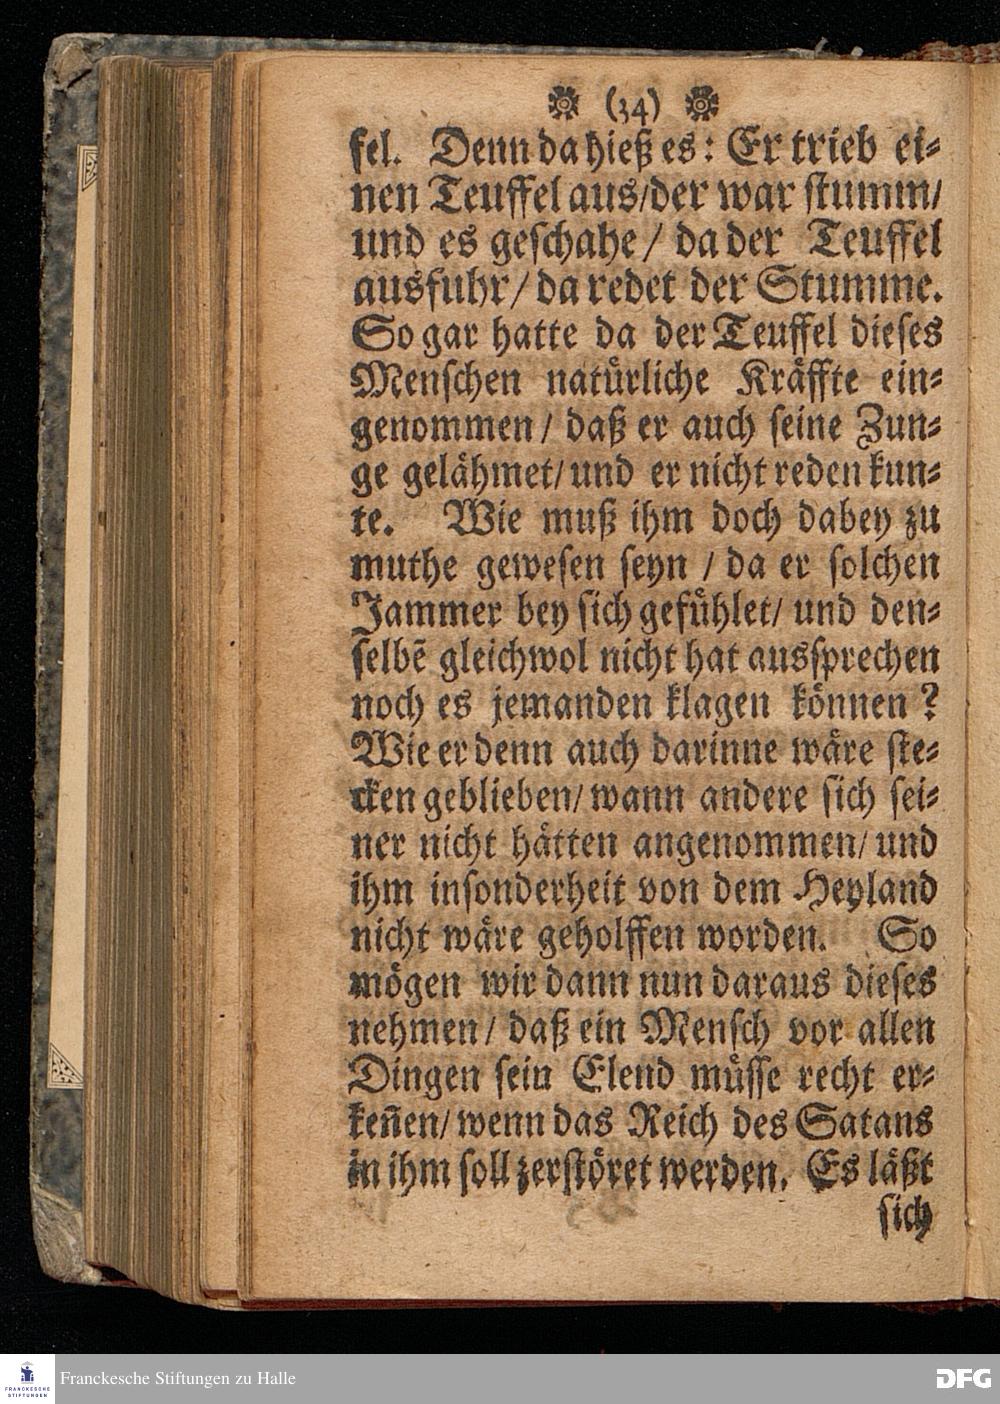 (34)
fel. Denn da hieß es: Er trieb ei-
nen Teuffel aus/der war stumm/
und es geschahe / da der Teuffel
ausfuhr / da redet der Stumme.
So gar hatte da der Teuffel dieses
Menschen natürliche Kräffte ein-
genommen / daß er auch seine Zun-
ge gelähmet/ und er nicht reden kun-
te. Wie muß ihm doch dabey zu
muthe gewesen seyn / da er solchen
Jammer bey sich gefühlet/ und den-
selbē gleichwol nicht hat aussprechen
noch es jemanden klagen können ?
Wie er denn auch darinne wäre ste-
cken geblieben/ wann andere sich sei-
ner nicht hätten angenommen/ und
ihm insonderheit von dem Heyland
nicht wäre geholffen worden. So
mögen wir dann nun daraus dieses
nehmen / daß ein Mensch vor allen
Dingen sein Elend müsse recht er-
keñen/ wenn das Reich des Satans
in ihm soll zerstöret werden. Es läßt
sich
FRANCKESCHE
STIFTUNGEN
Franckesche Stiftungen zu Halle
DFG